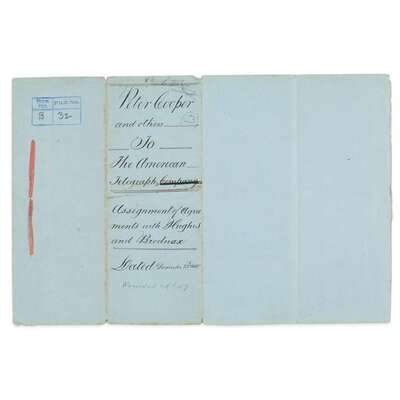 BOX NO. FILE NO.
B 32
Peter Cooper
and others
To
The American
Telegraph Company
Assignment of Agree
ments with Hughes
and Brodnax
Dated